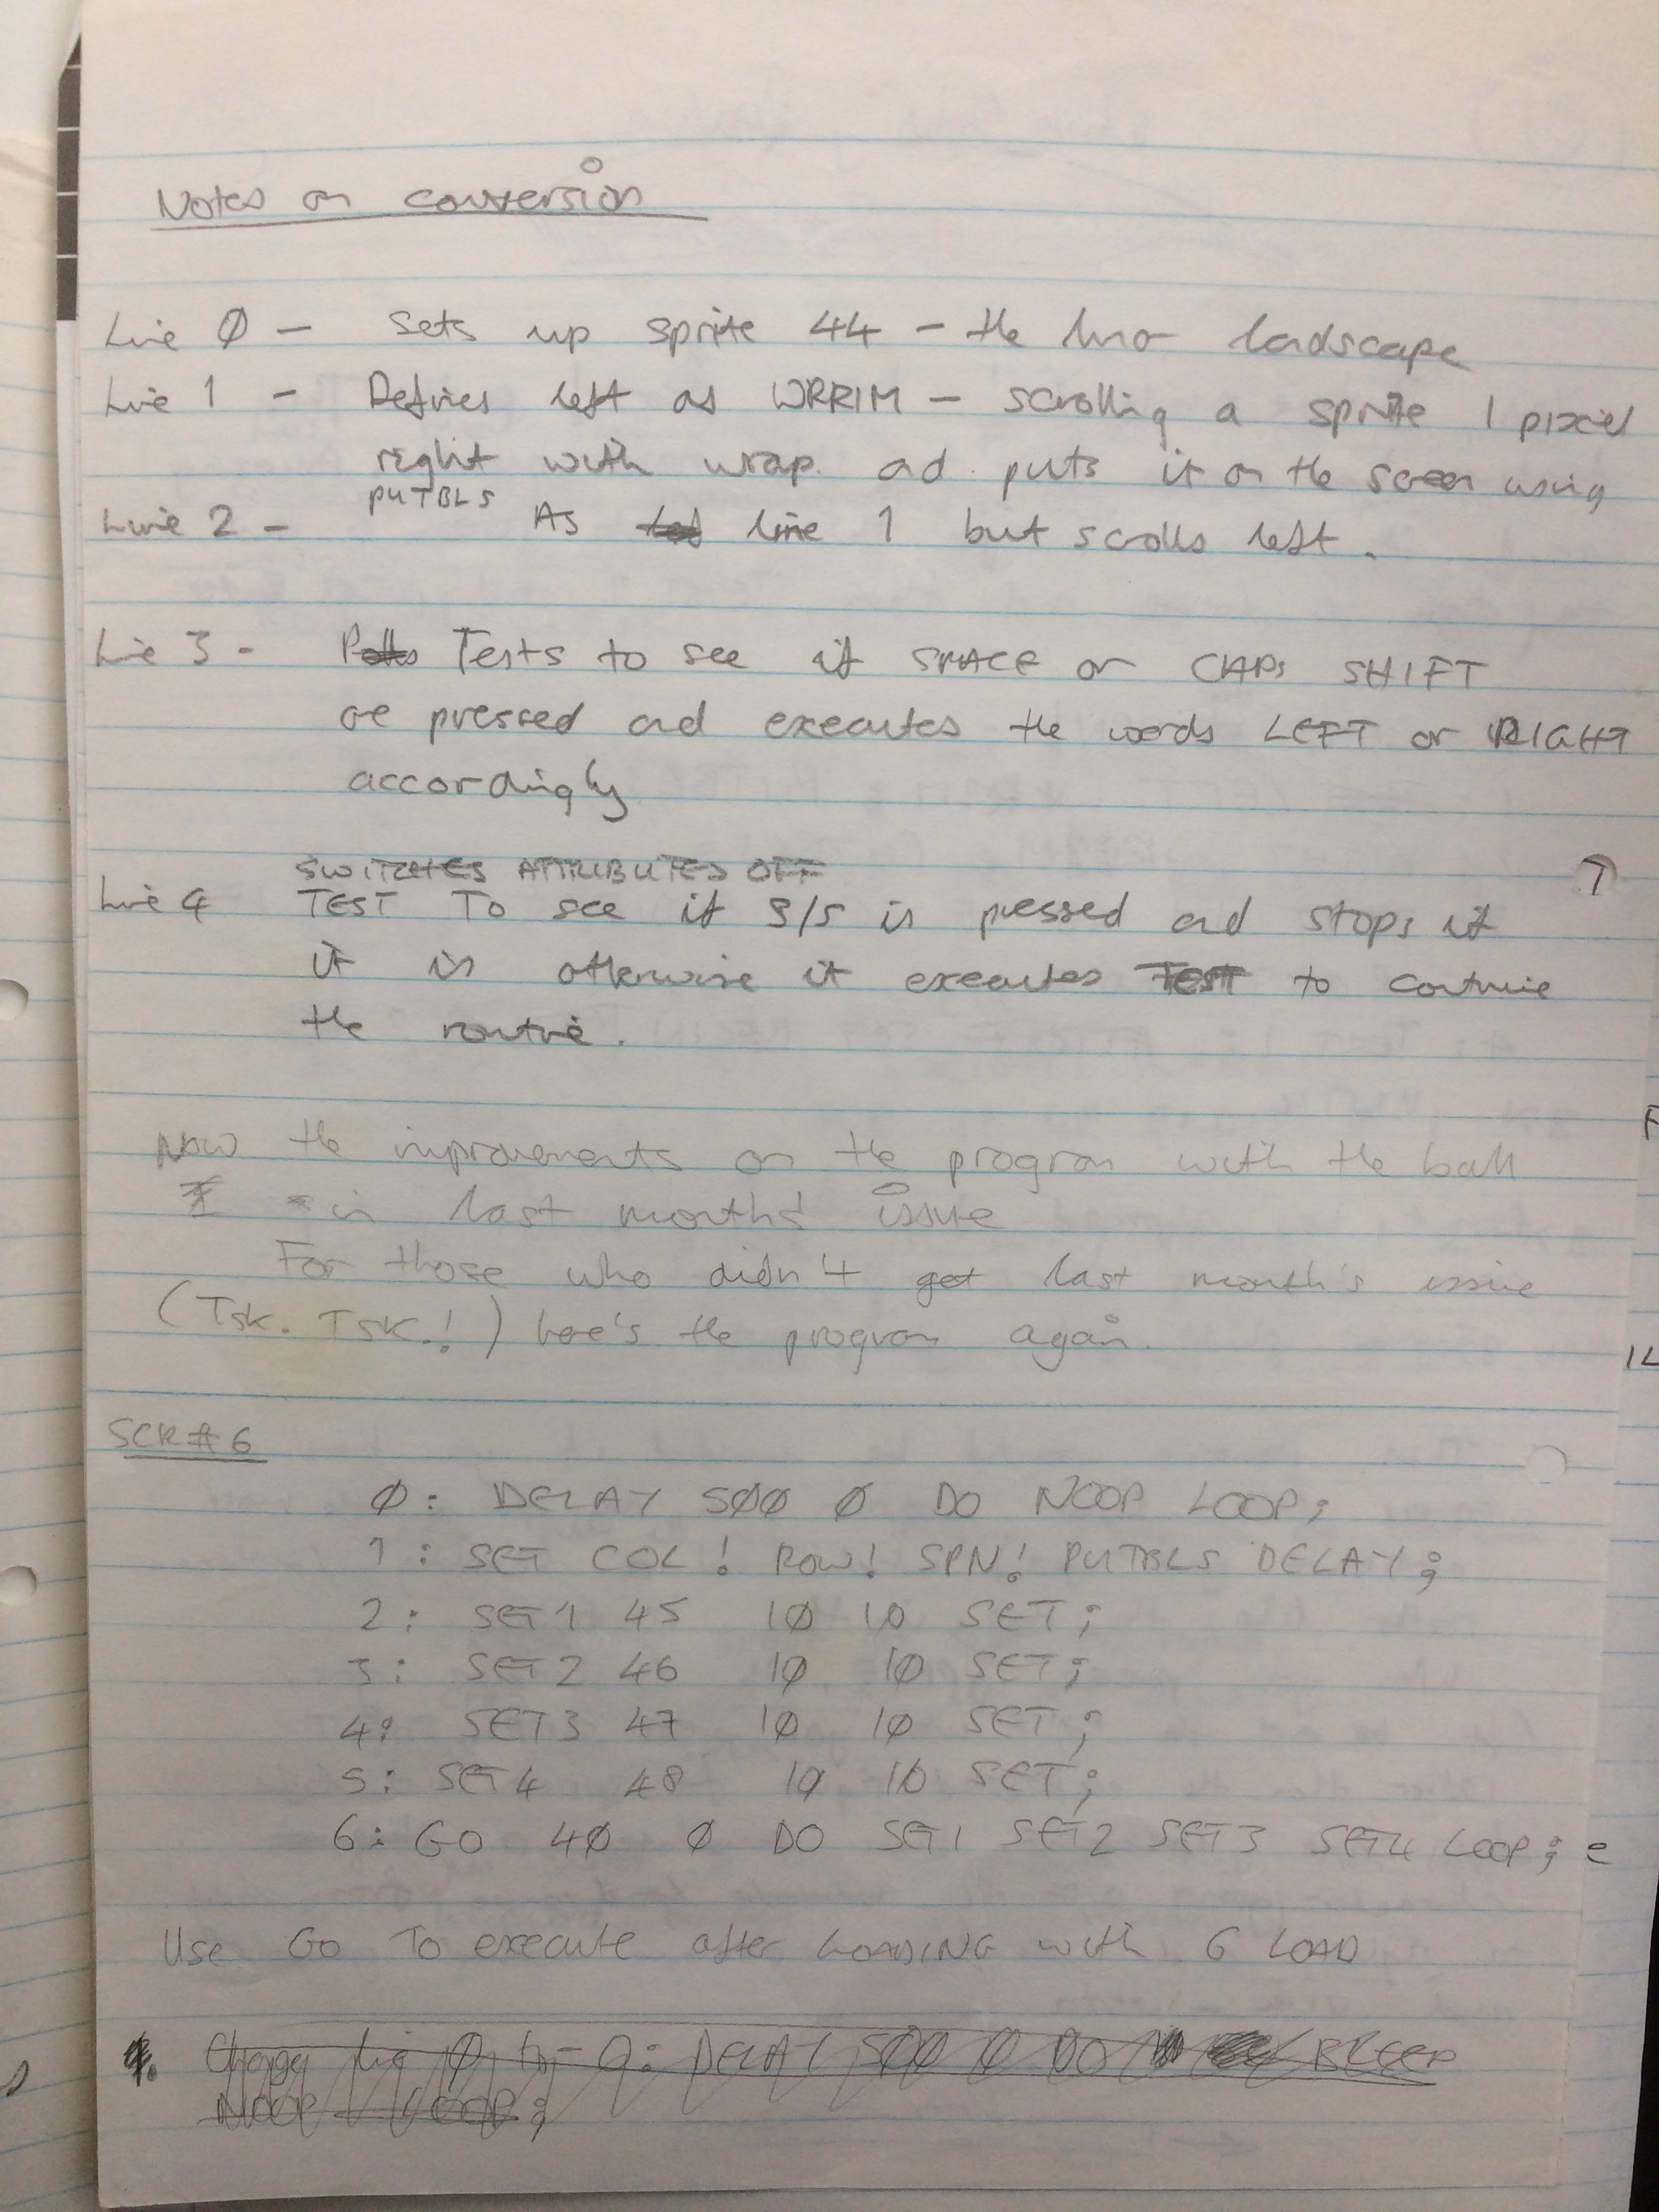 Notes on conversion
Line 0 - Sets up sprite 44 - the landscape
Line 1 - Defines left as WRRIM - scrolling a sprite 1 pixel
right with wrap. and puts it on the screen using
PUTBLS
Line 2 - As line 1 but scrolls left.
Line 3 - Tests to see if SPACE or CAPS SHIFT
are pressed and executes the words LEFT or RIGHT
accordingly
SWITCHES ATTRIBUTES OFF
Line 4 TEST To see if S/S is pressed and stops if
it is otherwise it executes TEST to continue
the routine.
Now the improvements on the program with the ball
in last months' issue
For those who didn't get last month's issue
(Tsk. Tsk.!) here's the program again.
SCR # 6
0: DELAY 500 0 DO NOOP LOOP;
1: SET COL! ROW! SPN! PUTBLS DELAY;
2: SET1 45 10 10 SET;
3: SET2 46 10 10 SET;
4: SET3 47 10 10 SET;
5: SET4 48 10 10 SET;
6: GO 40 0 DO SET1 SET2 SET3 SET4 LOOP; e
Use Go To execute after LOADING with 6 LOAD
1. Change line 0 to - 0: DELAY 500 0 DO BLEEP
NOOP LOOP;